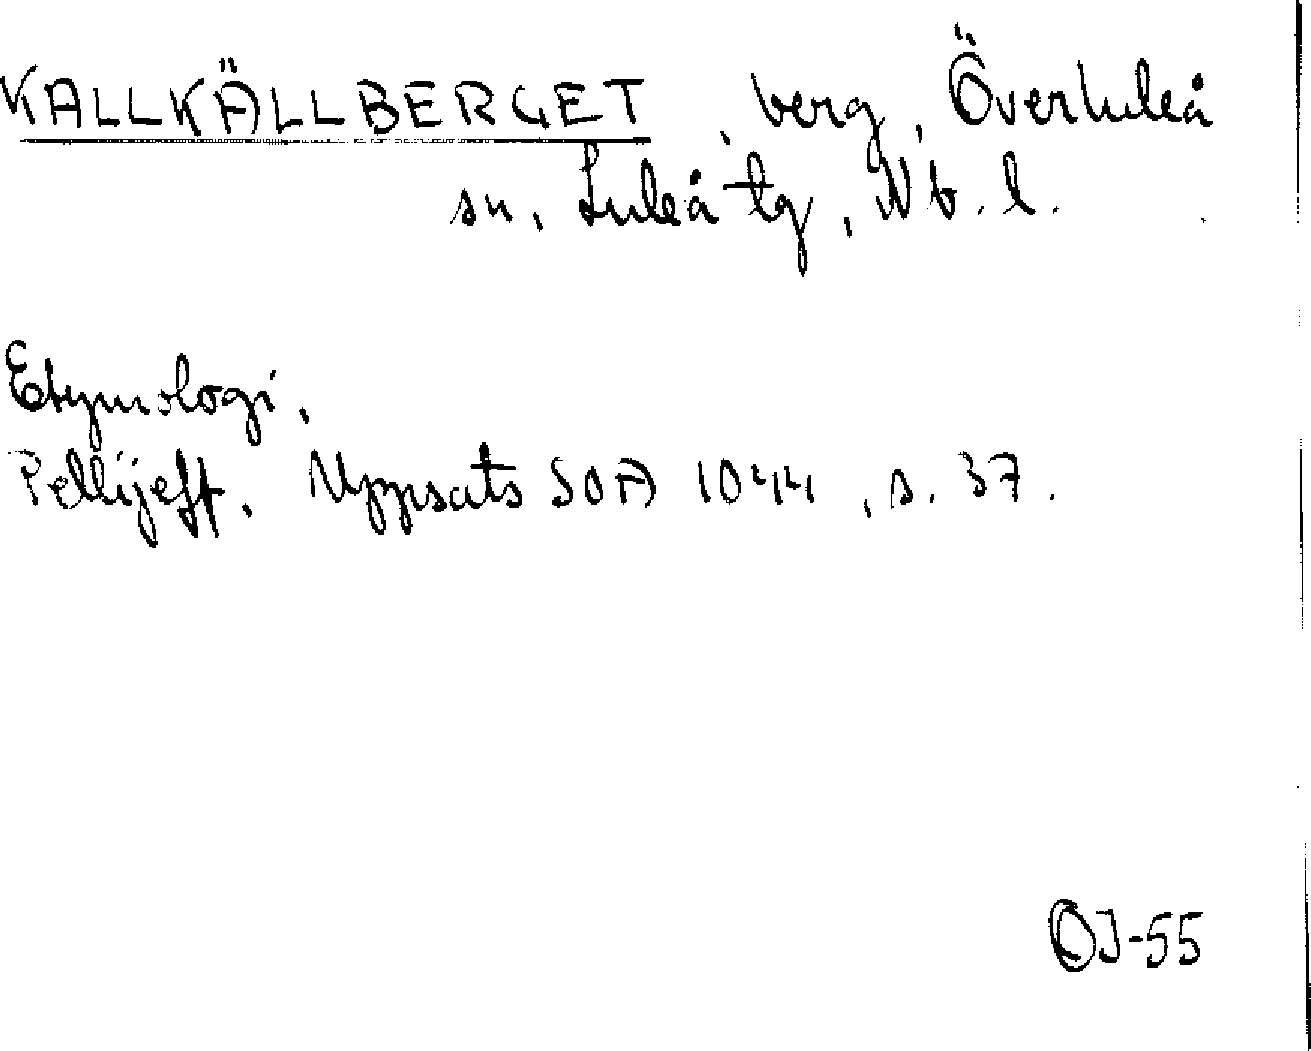 KALLKÄLLBERGET, berg, Överluleå
sn, Luleå tg, Nb. l.
Etymologi.
Pellijeff. Uppsats SOA 1044, s. 37.
OJ-55